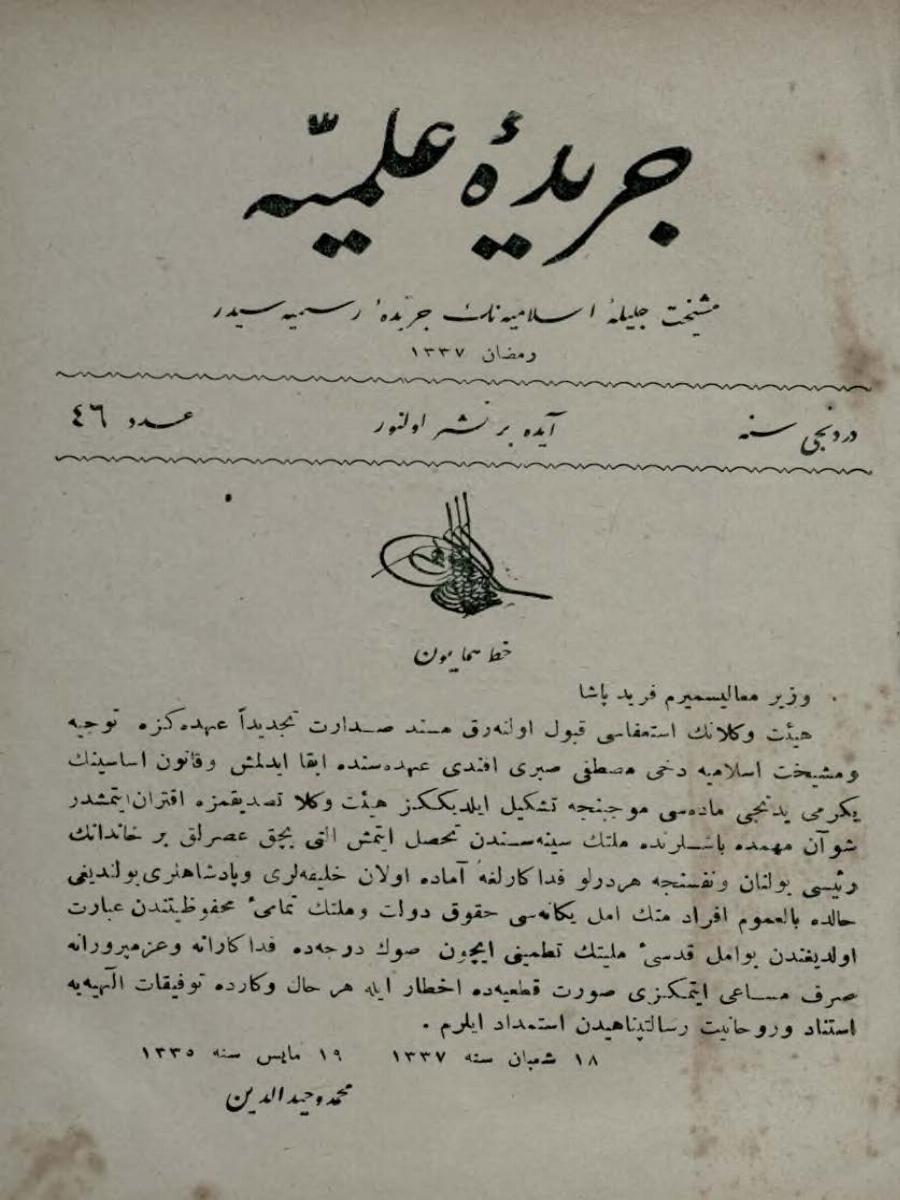 جريدهٔ علميّه
مشيخت جليلهٔ اسلاميه نك جريدهٔ رسميه سيدر
رمضان ١٣٣٧
دردنجى سنه
آيده بر نشر اولنور
عدد ٤٦
خط همايون
وزير معاليسميرم فريد پاشا
هيئت وكلانك استعفاسى قبول اولنه‌رق مسند صدارت تجديداً عهده‌كزه توجيه
ومشيخت اسلاميه دخى مصطفى صبرى افندى عهده‌سنده ابقا ايدلمش وقانون اساسينك
يكرمى يدنجى ماده‌سى موجبنجه تشكيل ايلديككز هيئت وكلا تصديقمزه اقتران ايتمشدر
شو آن مهمده باشلرنده ملتك سينه‌سندن تحصل ايتمش التى بچق عصرلق بر خاندانك
رئيسى بولنان ونفسنجه هر درلو فداكارلغه آماده اولان خليفه‌لرى وپادشاهلرى بولنديغى
حالده بالعموم افراد ملتك امل يكانه‌سى حقوق دولت وملتك تمامئ محفوظيتندن عبارت
اولديغندن بو امل قدسئ مليتك تطمينى ايچون صوك درجه‌ده فداكارانه وعزمپرورانه
صرف مساعى ايتمكزى صورت قطعيه‌ده اخطار ايله هر حال وكارده توفيقات الٓهيه‌يه
استناد وروحانيت رسالتپناهيدن استمداد ايلرم .
١٨ شعبان سنه ١٣٣٧ ١٩ مايس سنه ١٣٣٥
محمد وحيد الدين